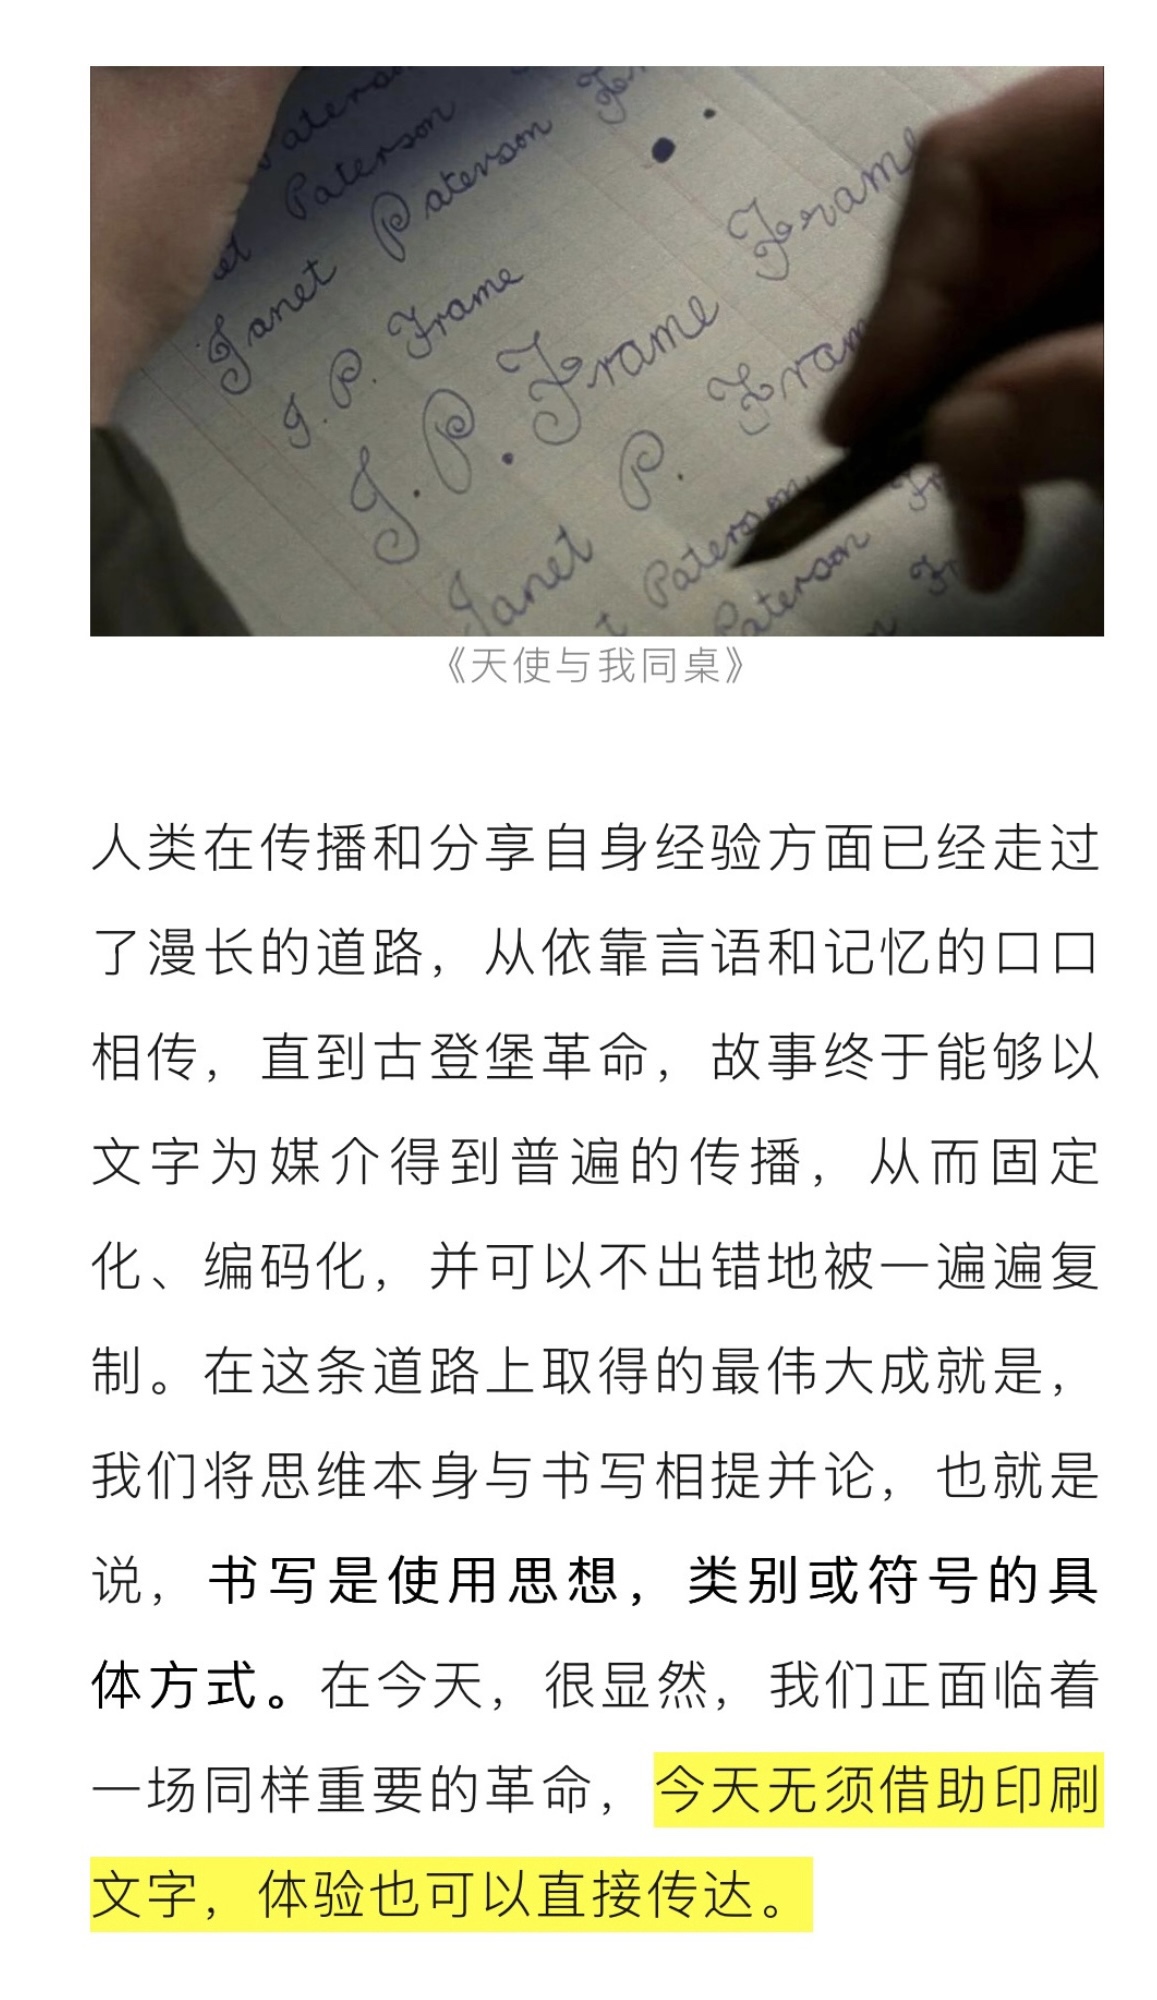 Paterson
Paterson
Janet Paterson Fr
J. P. Frame
J. P. Frame Frame
Janet P. Fram
Paterson Fr
Paterson Fr
《天使与我同桌》
人类在传播和分享自身经验方面已经走过
了漫长的道路，从依靠言语和记忆的口口
相传，直到古登堡革命，故事终于能够以
文字为媒介得到普遍的传播，从而固定
化、编码化，并可以不出错地被一遍遍复
制。在这条道路上取得的最伟大成就是，
我们将思维本身与书写相提并论，也就是
说，书写是使用思想，类别或符号的具
体方式。在今天，很显然，我们正面临着
一场同样重要的革命，今天无须借助印刷
文字，体验也可以直接传达。